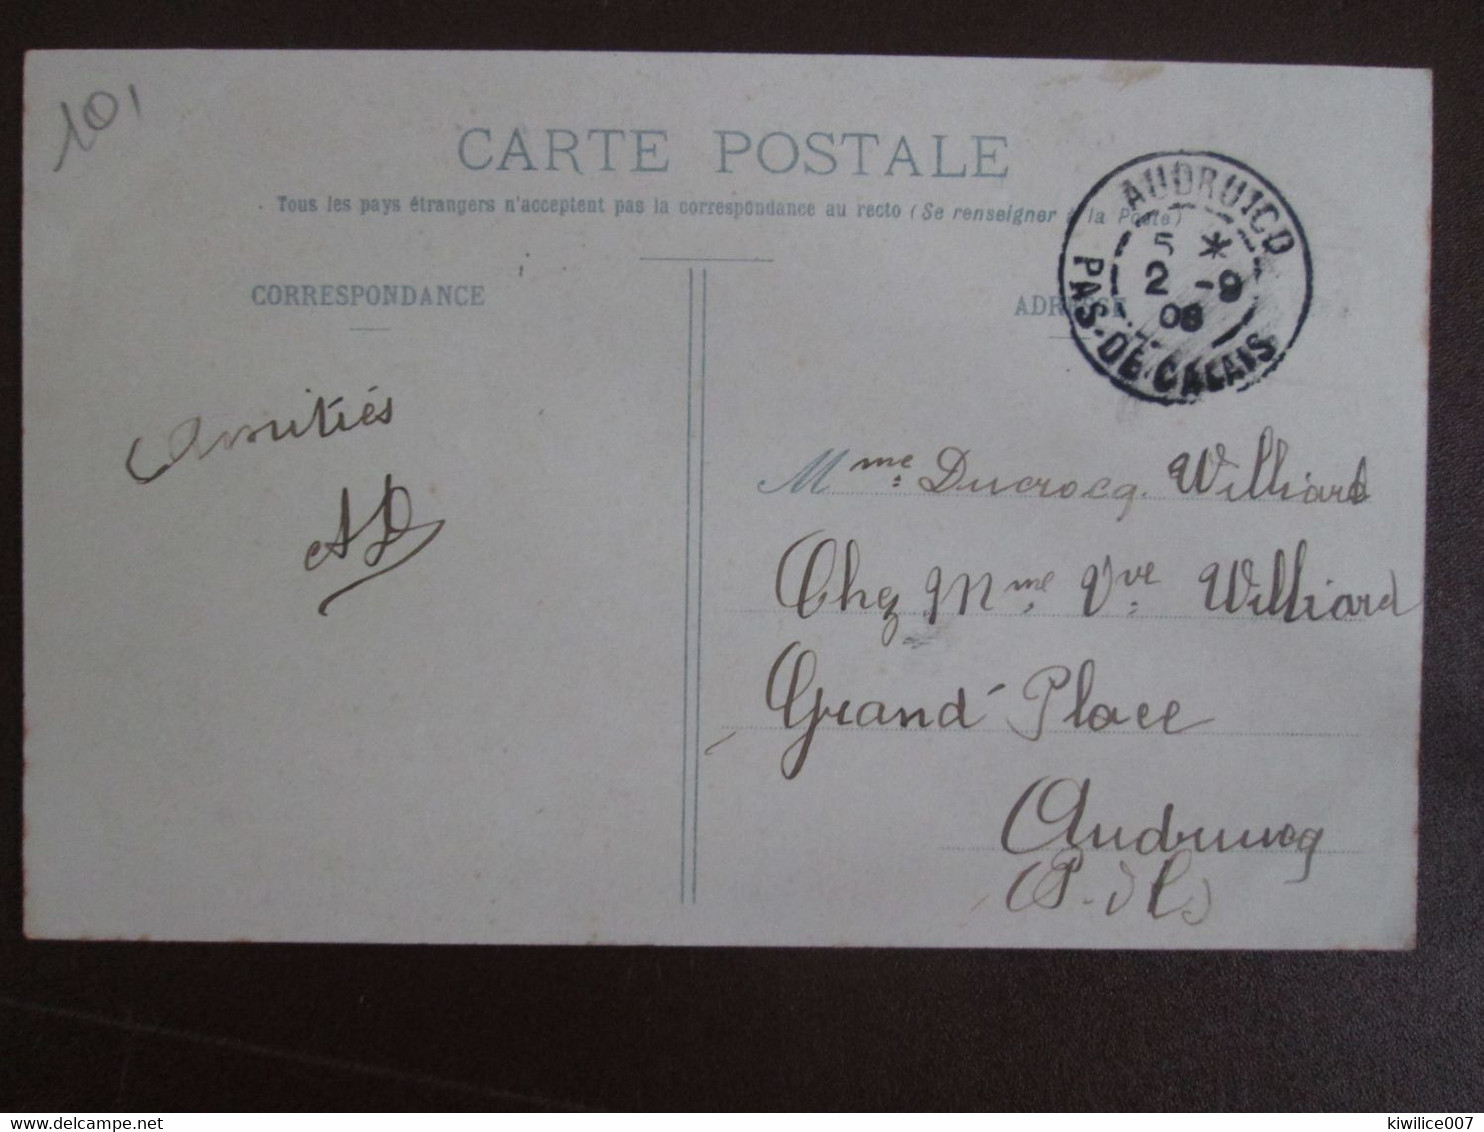 101
CARTE POSTALE
Tous les pays étrangers n'acceptent pas la correspondance au recto (Se renseigner à la Poste)
CORRESPONDANCE
ADRESSE
AUDRUICQ
5 *
2 -9
08
PAS-DE-CALAIS
Amitiés
AD
Mme Ducrocq. Williard
Chez Mme Vve Williard
Grand Place
Audruicq
(P. d C.)
kiwilice007